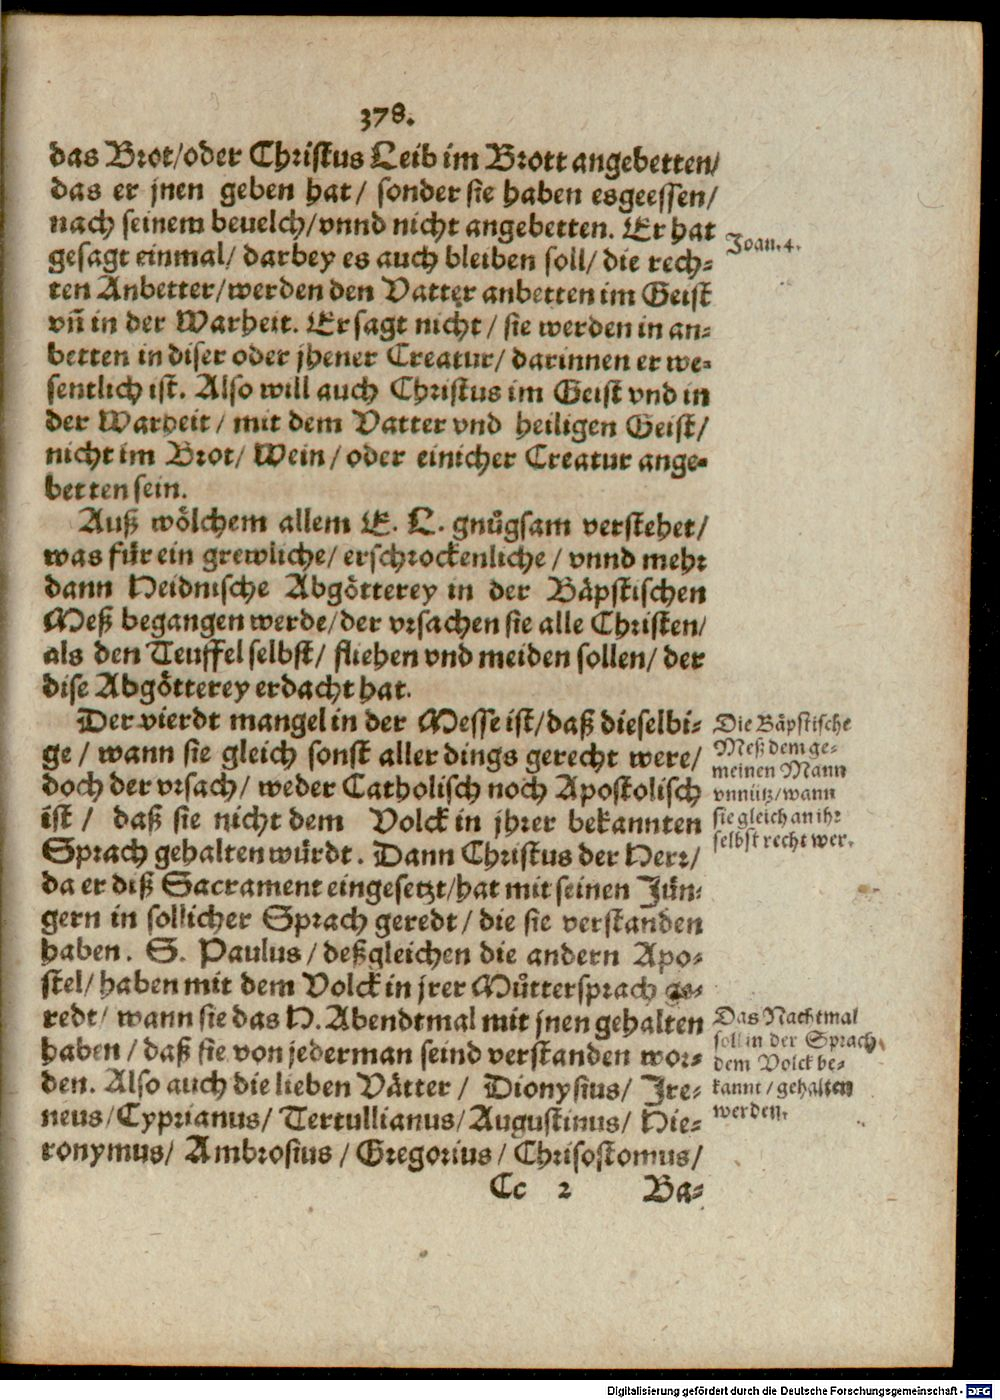 378.
das Brot/oder Christus Leib im Brott angebetten/
das er jnen geben hat/ sonder sie haben esgeessen/
nach seinem beuelch/vnnd nicht angebetten. Er hat
Joan. 4.
gesagt einmal/ darbey es auch bleiben soll/ die rech-
ten Anbetter/werden den Vatter anbetten im Geist
vñ in der Warheit. Er sagt nicht/ sie werden in an-
betten in diser oder jhener Creatur/ darinnen er we-
sentlich ist. Also will auch Christus im Geist vnd in
der Warheit/ mit dem Vatter vnd heiligen Geist/
nicht im Brot/ Wein/ oder einicher Creatur ange-
betten sein.
Auß wölchem allem E. L. gnůgsam verstehet/
was für ein grewliche/ erschrockenliche/ vnnd mehr
dann Heidnische Abgötterey in der Bäpstischen
Meß begangen werde/der vrsachen sie alle Christen/
als den Teuffel selbst/ fliehen vnd meiden sollen/ der
dise Abgötterey erdacht hat.
Der vierdt mangel in der Messe ist/daß dieselbi-
ge/ wann sie gleich sonst aller dings gerecht were/
doch der vrsach/ weder Catholisch noch Apostolisch
ist/ daß sie nicht dem Volck in jhrer bekannten
Sprach gehalten würdt. Dann Christus der Herr/
da er diß Sacrament eingesetzt/hat mit seinen Jün-
gern in sollicher Sprach geredt/ die sie verstanden
haben. S. Paulus/ deßgleichen die andern Apo-
stel/ haben mit dem Volck in jrer Můttersprach ge-
redt/ wann sie das H. Abendtmal mit jnen gehalten
haben/ daß sie von jederman seind verstanden wor-
den. Also auch die lieben Vätter/ Dionysius/ Jre-
neus/Cyprianus/ Tertullianus/Augustinus/ Hie-
ronymus/ Ambrosius/ Gregorius/ Chrisostomus/
Die Bäpstische
Meß dem ge-
meinen Mann
vnnütz/wann
sie gleich an ihr
selbst recht wer.
Das Nachtmal
soll in der Sprach
dem Volck be-
kannt/ gehalten
werden.
Cc 2 Ba-
Digitalisierung gefördert durch die Deutsche Forschungsgemeinschaft - DFG